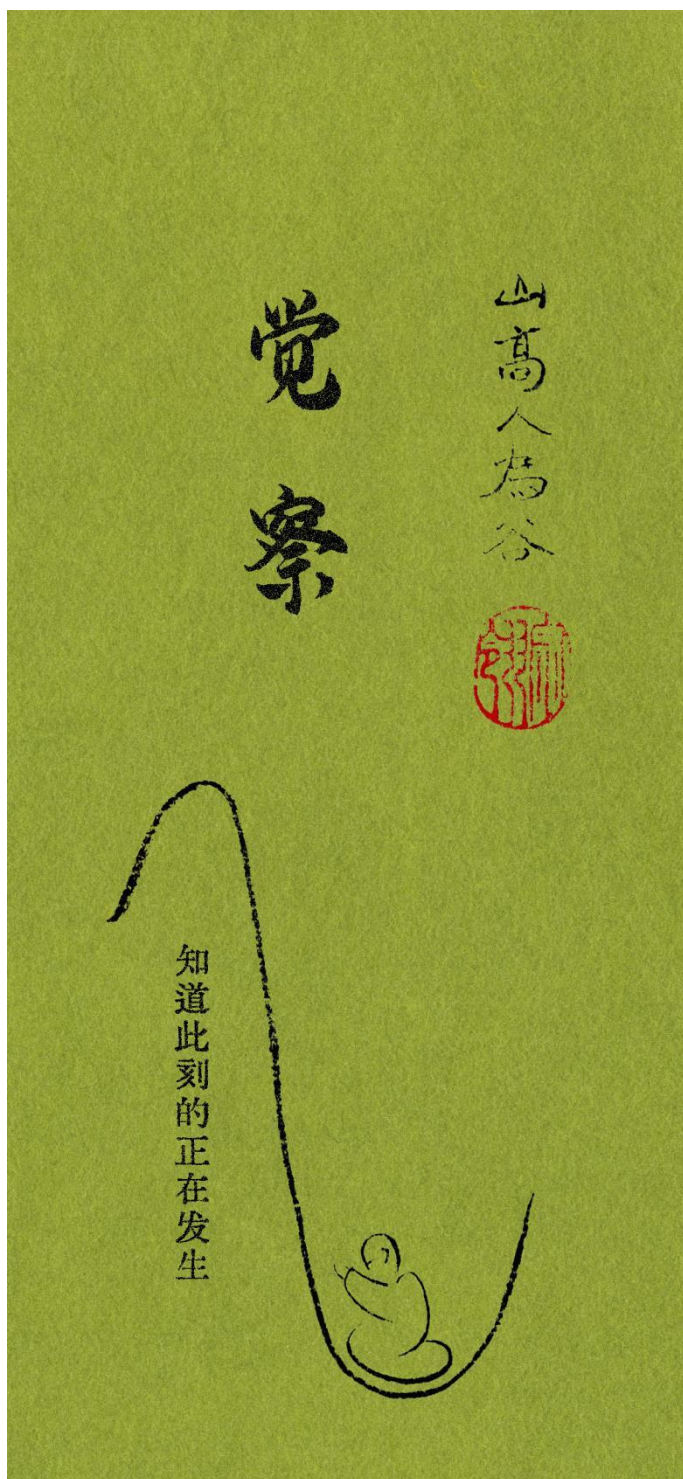 山高人為谷
覚察
知道此刻的正在发生